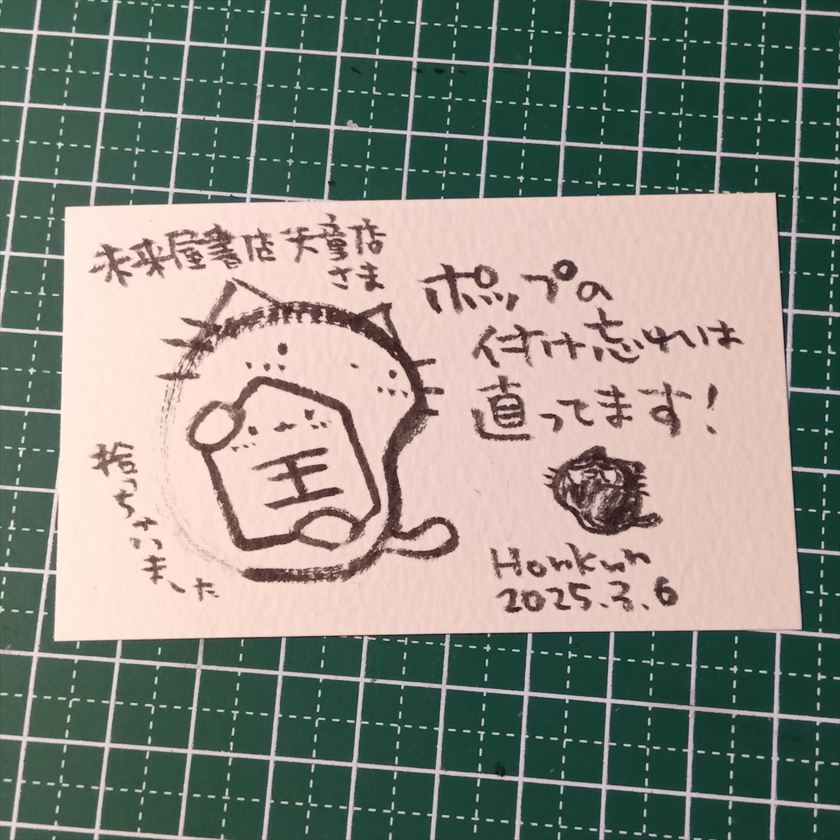 未来屋書店天童店
さま
ポップの
付け忘れは
直ってます!
王
拾っちゃいました
Honkun
2025.3.6